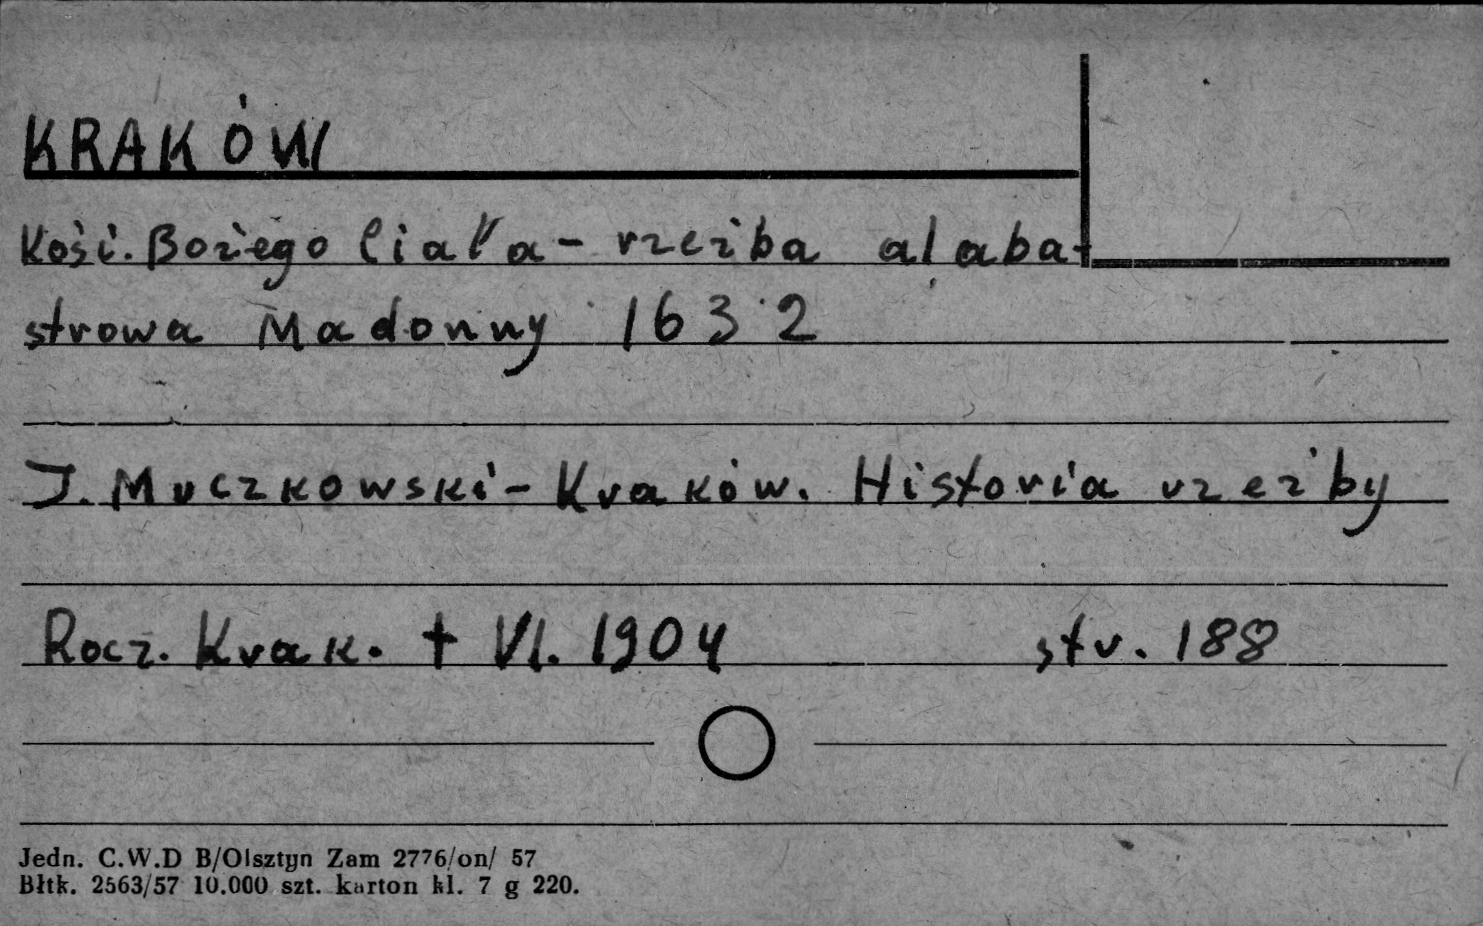 KRAKÓW
Kość. Bożego Ciała - rzeźba alaba-
strowa Madonny 1632
J. Muczkowski - Kraków. Historia rzeźby
Rocz. Krak. t VI. 1904 str. 188
Jedn. C.W.D B/Olsztyn Zam 2776/on/ 57
Błtk. 2563/57 10.000 szt. karton kl. 7 g 220.